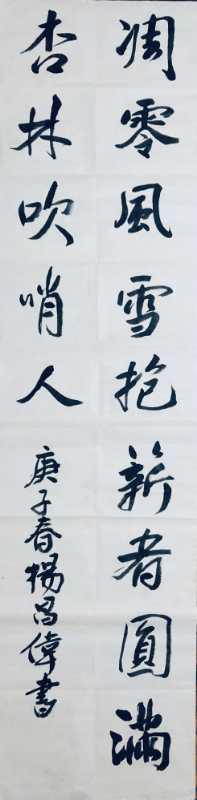 凋零風雪抱薪者圓滿
杏林吹哨人
庚子春楊昌偉書